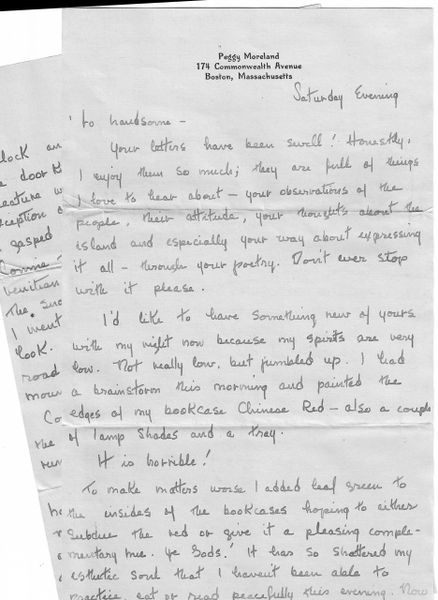 Peggy Moreland
174 Commonwealth Avenue
Boston, Massachusetts
Saturday Evening
to handsome -
Your letters have been swell! Honestly,
I enjoy them so much; they are full of things
I love to hear about - your observations of the
people, their attitude, your thoughts about the
island and especially your way about expressing
it all - through your poetry. Don't ever stop
with it please.
I'd like to have something new of yours
with my night now because my spirits are very
low. Not really low, but jumbled up. I had
a brainstorm this morning and painted the
edges of my bookcase Chinese Red - also a couple
of lamp shades and a tray.
It is horrible!
To make matters worse I added leaf green to
the insides of the bookcases hoping to either
subdue the red or give it a pleasing comple-
mentary hue. Ye Gods! It has so shattered my
esthetic soul that I haven't been able to
practice, eat or read peacefully this evening. Now
lock an
door
eature w
ception
gasped
Connie
venitian
The
I went
look.
road
mow
Co
the
run